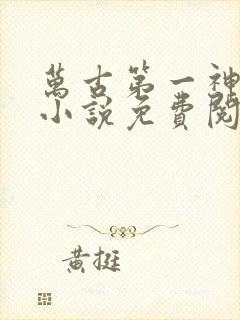 萬古第一神
小說免費閱
黃挺